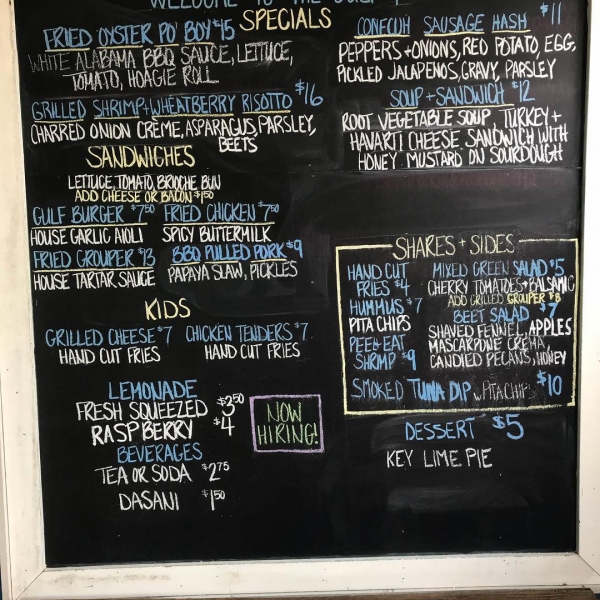 WELCOME TO THE GULF
SPECIALS
FRIED OYSTER PO' BOY $15
WHITE ALABAMA BBQ SAUCE, LETTUCE,
TOMATO, HOAGIE ROLL
GRILLED SHRIMP + WHEATBERRY RISOTTO $16
CHARRED ONION CRÈME, ASPARAGUS, PARSLEY,
BEETS
CONECUH SAUSAGE HASH $11
PEPPERS + ONIONS, RED POTATO, EGG,
PICKLED JALAPENOS, GRAVY, PARSLEY
SOUP + SANDWICH $12
ROOT VEGETABLE SOUP, TURKEY +
HAVARTI CHEESE SANDWICH WITH
HONEY MUSTARD ON SOURDOUGH
SANDWICHES
LETTUCE, TOMATO, BRIOCHE BUN
ADD CHEESE OR BACON $1.50
GULF BURGER $7.50
HOUSE GARLIC AIOLI
FRIED CHICKEN $7.50
SPICY BUTTERMILK
FRIED GROUPER $13
HOUSE TARTAR SAUCE
BBQ PULLED PORK $9
PAPAYA SLAW, PICKLES
KIDS
GRILLED CHEESE $7
HAND CUT FRIES
CHICKEN TENDERS $7
HAND CUT FRIES
LEMONADE
FRESH SQUEEZED $3.50
RASPBERRY $4
BEVERAGES
TEA OR SODA $2.75
DASANI $1.50
NOW
HIRING!
SHARES + SIDES
HAND CUT
FRIES $4
HUMMUS $7
PITA CHIPS
PEEL + EAT
SHRIMP $9
MIXED GREEN SALAD $5
CHERRY TOMATOES + BALSAMIC
ADD GRILLED GROUPER $8
BEET SALAD $7
SHAVED FENNEL, APPLES
MASCARPONE CREMA,
CANDIED PECANS, HONEY
SMOKED TUNA DIP w/ PITA CHIPS $10
DESSERT $5
KEY LIME PIE